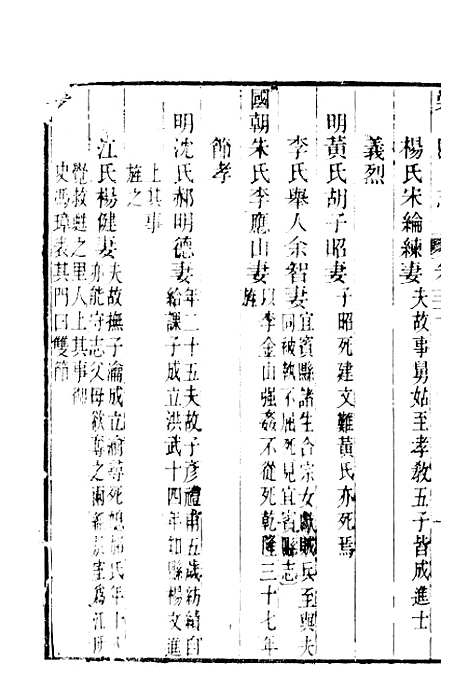 楊氏宋綸練妻夫故事舅姑至孝敎五子皆成進士
義烈
明黃氏胡子昭妻子昭死建文難黃氏亦死焉
李氏舉人余智妻宜賓縣諸生合宗女獻賊兵至與夫
同被執不屈死見宜賓縣志
國朝朱氏李應山妻以李金山强姦不從死乾隆三十七年
旌
節孝
明沈氏郝明德妻年二十五夫故子彥禮甫五歲紡績自
給課子成立洪武十四年知縣楊文進
上其事
旌之
江氏楊健妻夫故撫子瀹成立瀹尋死媳
亦能守志父母欲奪之
覺救甦之里人上其事御
史馮璋表其門曰雙節